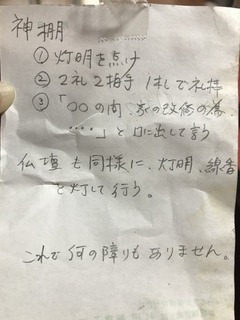 神棚
① 灯明を点け
② 2礼2拍手 1礼して礼拝
③ 「○○の間、家の改修の為、
‥‥」と口に出して言う
仏壇も同様に、灯明、線香
を灯して行う。
これで何の障りもありません。